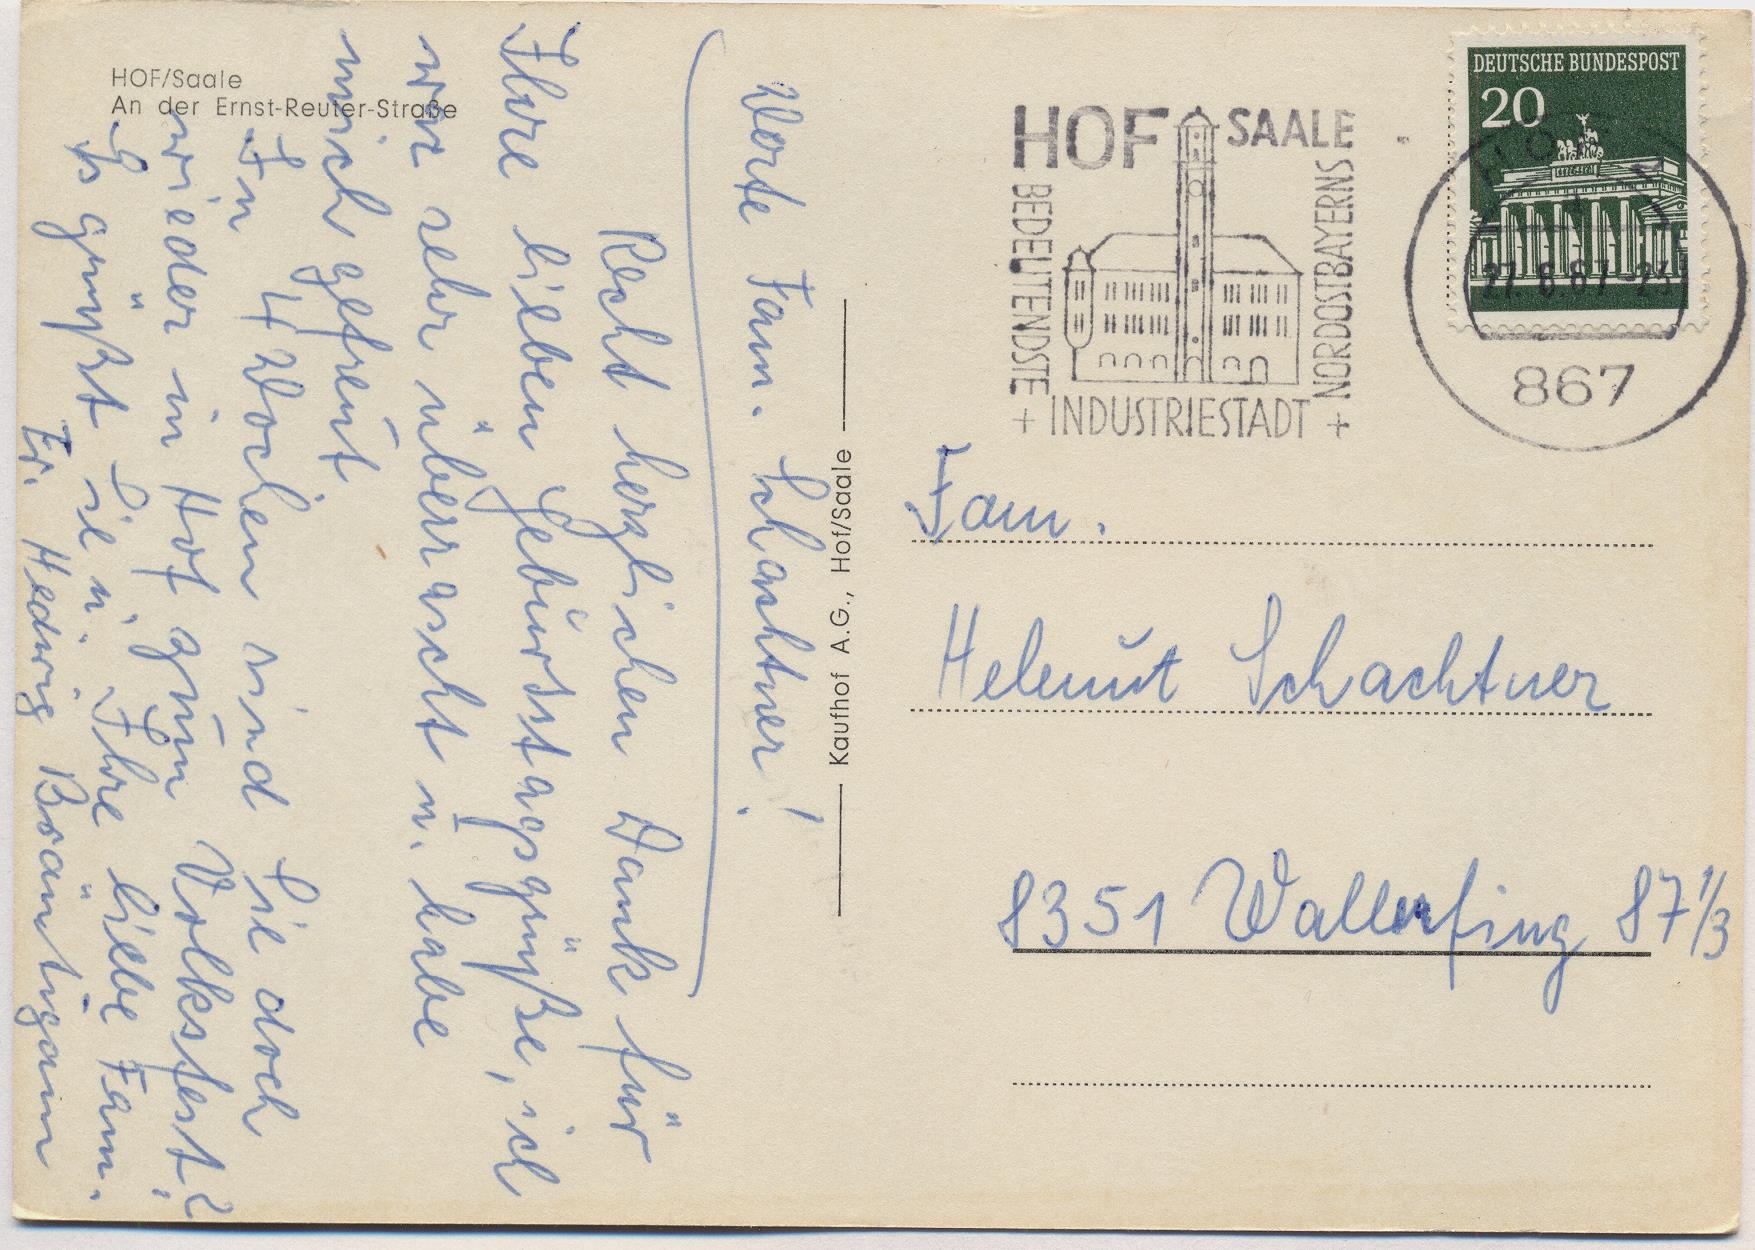 HOF/Saale
An der Ernst-Reuter-Straße
Werte Fam. Schachtner!
Recht herzlichen Dank für
Ihre lieben Geburtstagsgrüße, ich
war sehr überrascht u. habe
mich gefreut.
In 4 Wochen sind Sie doch
wieder in Hof zum Volksfest?
Es grüßt Sie u. Ihre liebe Fam.
Fr. Hedwig Bräutigam
Kaufhof A.G., Hof/Saale
HOF SAALE
BEDEUTENDSTE
NORDOSTBAYERNS
+ INDUSTRIESTADT +
DEUTSCHE BUNDESPOST
20
27.6.67
867
Fam.
Helmut Schachtner
8351 Wallerfing 87 1/3